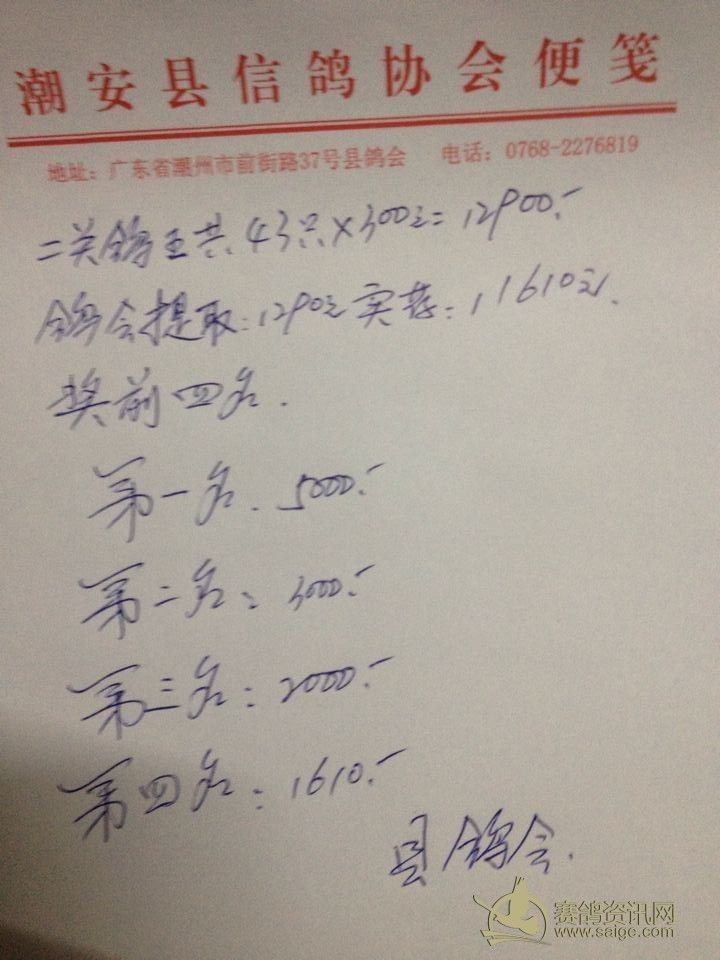 潮安县信鸽协会便笺
地址：广东省潮州市前街路37号县鸽会 电话：0768-2276819
二关鸽王共43只×300元=12900.-
鸽会提取：1290元 实发：11610元.
奖前四名.
第一名. 5000.-
第二名：3000.-
第三名：2000.-
第四名：1610.-
县鸽会.
赛鸽资讯网
www.saige.com